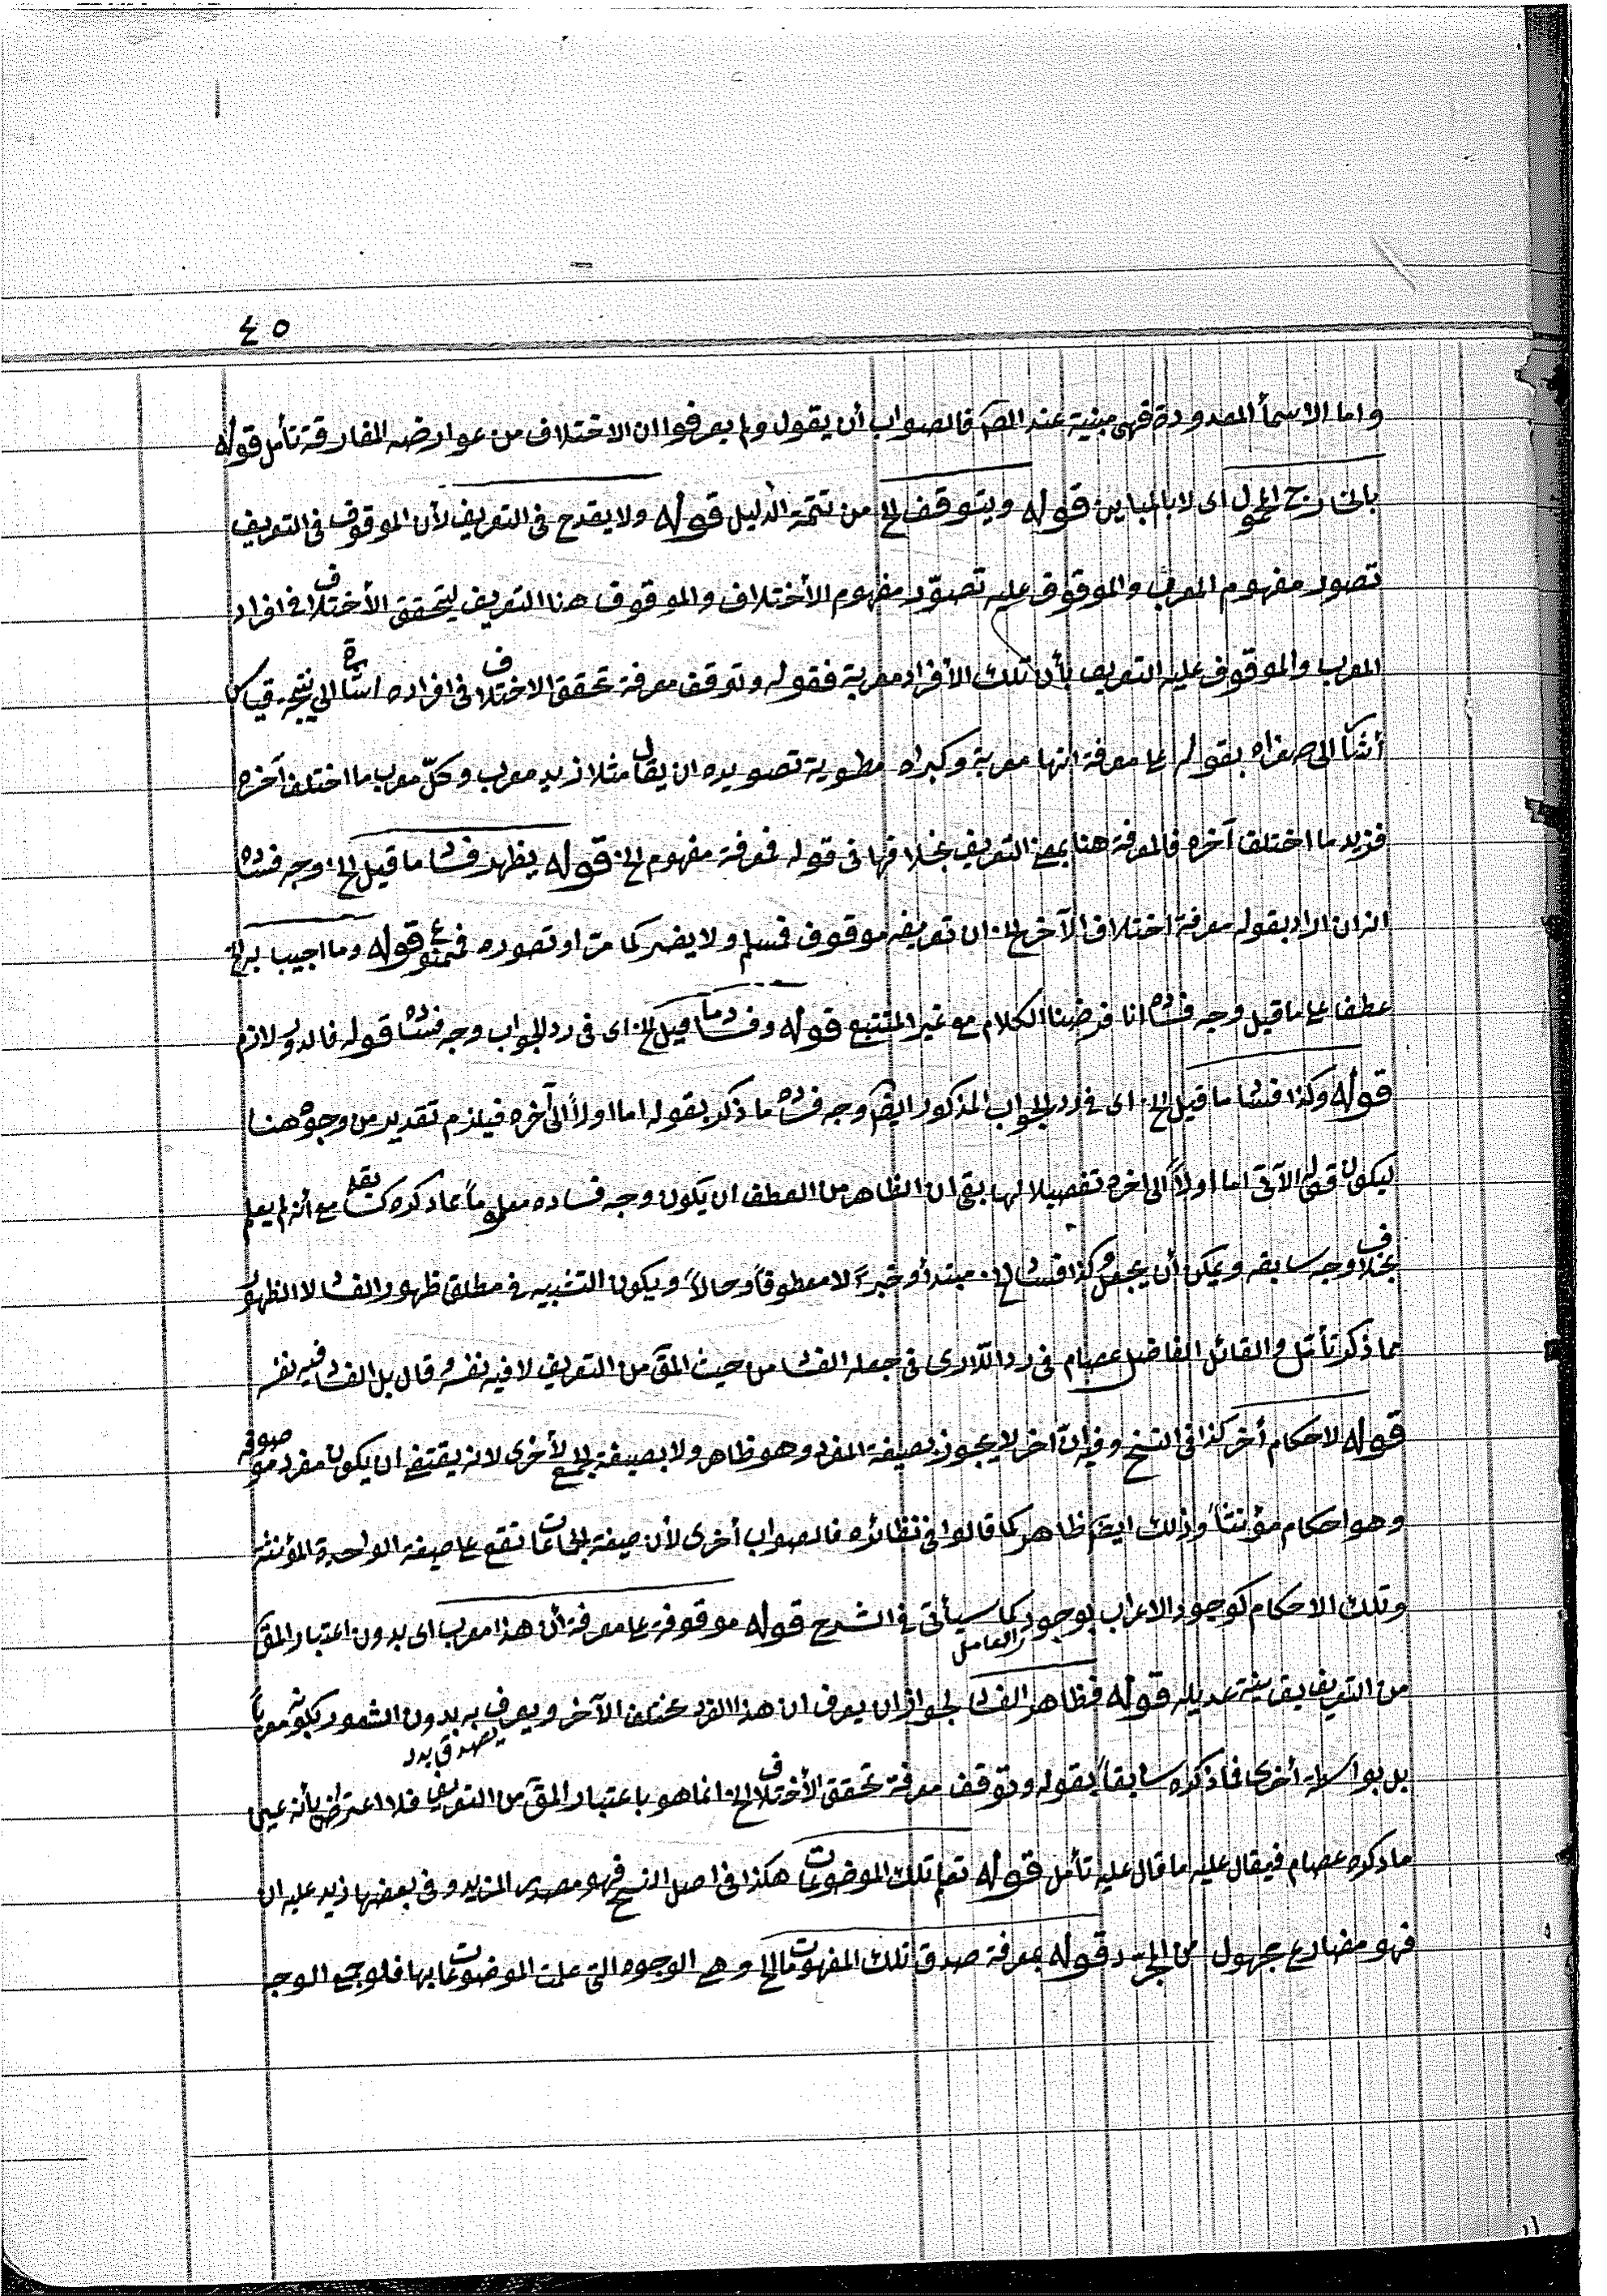 ٤٥
واما الاسمأ المعدودة فهى مبنية عند المصـ فالصواب أن يقول ولم يعرفوا ان الاختلاف من عوارضه المفارقة تأمل قوله
بالخارج المحمول اى لا بالمباين قوله ويتوقف الخ من تتمة الدليل قوله ولا يقدح فى التعريف لأن الموقوف فى التعريف
تصور مفهوم المعرب والموقوف عليه تصوّر مفهوم الأختلاف والموقوف هنا التعريف ليتحقق الأختلاف فى افراد
المعرب والموقوف عليه التعريف بأن تلك الأفراد معربة فقوله وتوقف معرفة تحقق الاختلاف فى افراده اشارة الى نتيجة قياس
أشار الى صغراه بقوله على معرفة انها معربة وكبراه مطوية تصويره ان يقال مثلا زيد معرب وكلّ معرب ما اختلف آخره
فزيد ما اختلف آخره فالمعرفة هنا بمعنى التعريف بخلافها فى قوله فمعرفة مفهوم الخ قوله يظهر فساد ما قيل الخ وجه فساده
انه ان اراد بقوله معرفة اختلاف الآخر الخ ان تعريفه موقوف فمسلم ولا يضر كما مرّ او تصوره فممنوع قوله وما اجيب به الخ
عطف على ما قيل وجه فساده انا فرضنا الكلام مع غير المتتبع قوله وفساد ما قيل الخ اى فى رد الجواب وجه فساده قوله فالدور لازم
قوله وكذا فساد ما قيل الخ اى فى رد الجواب المذكور ايضا وجه فساده ما ذكر بقوله اما اولاً الى آخره فيلزم تقدير من وجوه هنا
ليكون قوله الآتى اما اولاً الى اخره تفصيلا لها بقى ان الظاهر من العطف ان يكون وجه فساده معلوماً مما ذكره سابقه مع أنه لم يعلم
بخلاف وجه سابقه ويمكن أن يجعل وكذا فساد الخ مبتدأ وخبراً لا معطوفاً وحالاً ويكون التشبيه فى مطلق ظهور الفساد لا الظهور
مما ذكر تأمّل والقائل الفاضل عصام فى رد اللارى فى جعله الفساد من حيث المق من التعريف لا فيه نفسه وقال بل الفساد فيه نفسه
قوله لاحكام أخر كذا فى النسخ وفيه انّ آخر لا يجوز بصيغة المفرد وهو ظاهر ولا بصيغة الجمع لأخرى لانه يقتضى ان يكون مفرد موصوفه
وهو احكام مؤنثاً وذلك ايضا ظاهر كما قالوا فى نظائره فالصواب أخرى لأن صيغة الجماعات تقع على صيغة الواحدة المؤنثة
وتلك الاحكام كوجود الاعراب لوجود العامل كما سيأتى فى الشرح قوله موقوفة على معرفة أن هذا معرب اى بدون اعتبار المق
من التعريف بقرينة عديله قوله فظاهر الفساد لجواز ان يعرف ان هذا الفرد مختلف الآخر ويعرف به بدون الشعور بكونه معرباً
بل بواسطة أخرى فما ذكره سابقاً بقوله وتوقف معرفة تحقق الأختلاف الخ انما هو باعتبار المق من التعريف فلا اعتراض بأنه عين
ما ذكره عصام فيقال عليه ما قال عليه تأمل قوله تعلم تلك الموضوعات هكذا فى اصل النسخ فهو مصدر المزيد وفى بعضها زيد عليه ان
فهو مضارع مجهول من المجرّد قوله بمعرفة صدق تلك المفهومات الخ وهى الوجوه التى علمت الموضوعات بها فلو جمع الوجه